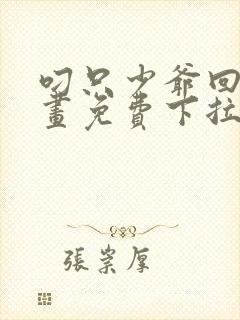 叼只少爺回
畫免費下拉
張崇厚